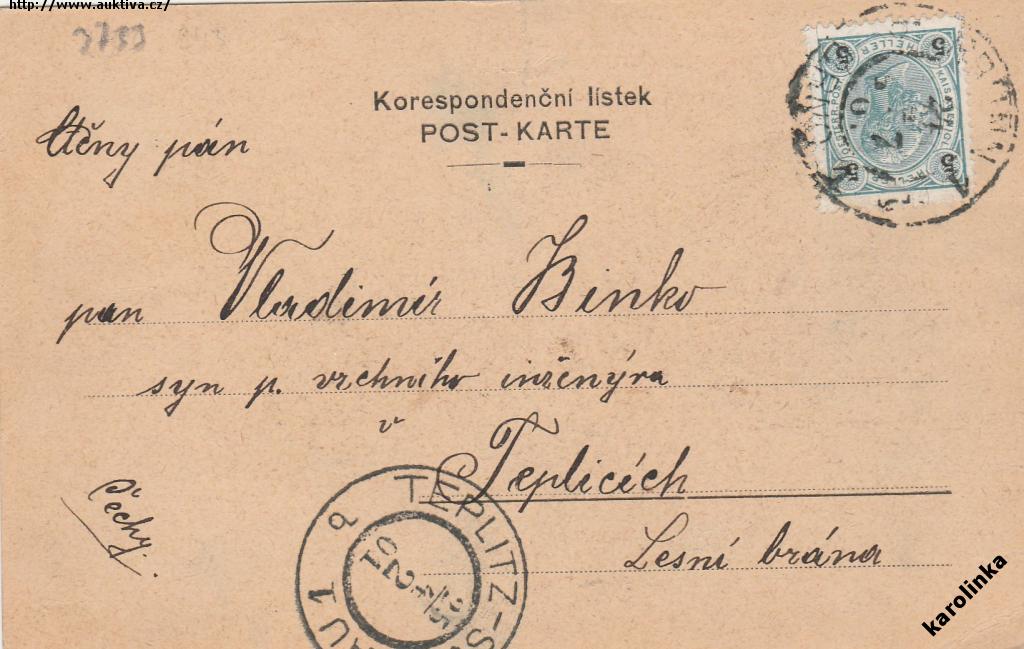 http://www.auktiva.cz/
2733
Korespondenční lístek
POST-KARTE
Ctěný pán
pan Vladimír Binko
syn p. vrchního inženýra
v
Teplicích
Lesní brána
Čechy.
TEPLITZ-S
AU 1
5 HELLER 5
karolinka